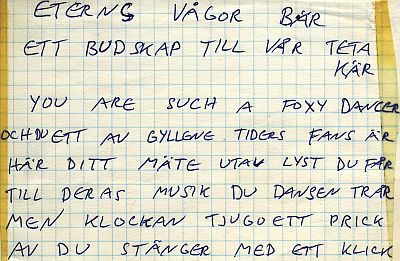 ETERNS VÅGOR BÄR
ETT BUDSKAP TILL VÅR TETA
KÄR
YOU ARE SUCH A FOXY DANCER
OCH DU ETT AV GYLLENE TIDERS FANS ÄR
HÄR DITT MÄTE UTAV LYST DU FÅR
TILL DERAS MUSIK DU DANSEN TRÅR
MEN KLOCKAN TJUGOETT PRICK
AV DU STÄNGER MED ETT KLICK